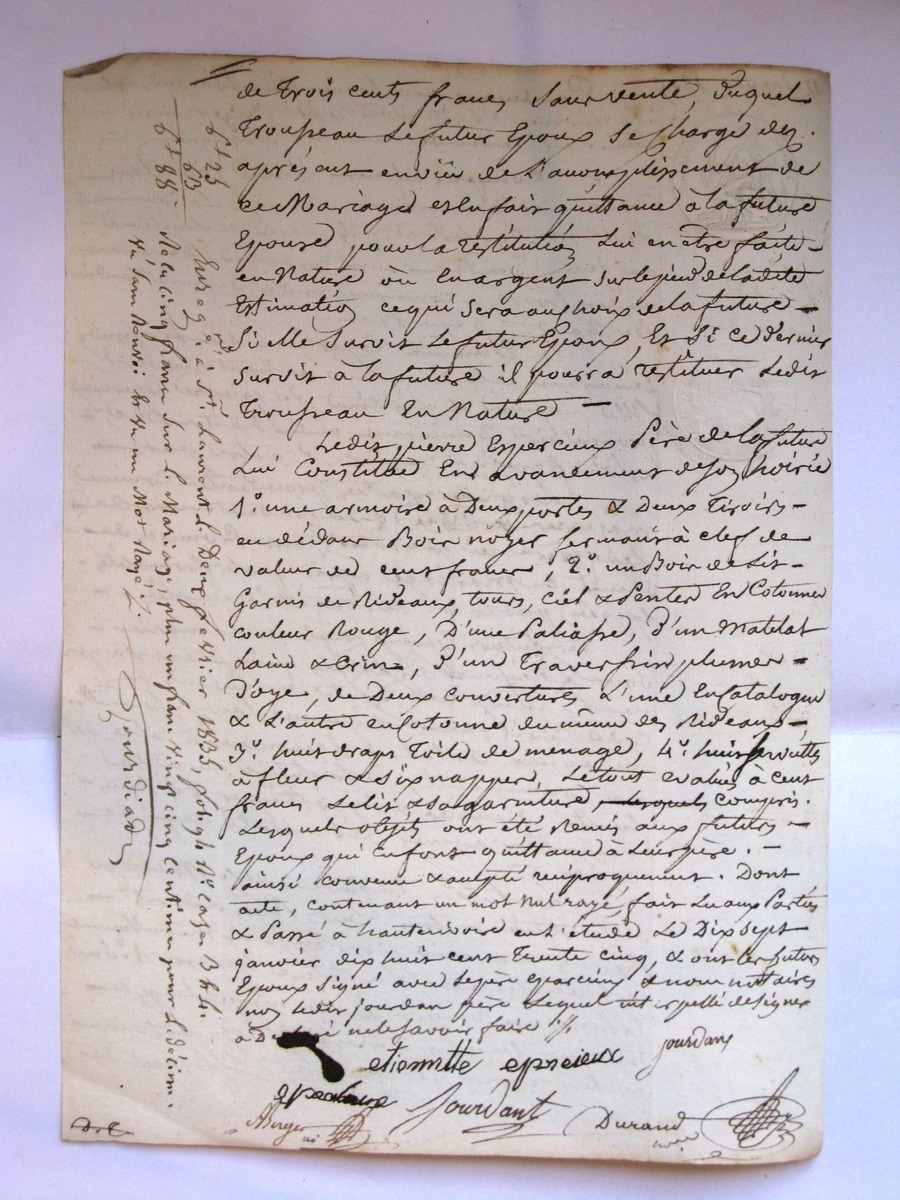 de trois cents francs sans vente, duquel
Trousseau le futur Epoux se Charge dez
aprésent en vüe de l'accomplissement de
ce Mariage et en fait quittance à la future
Epouse pour la restitution lui en être faite
en Nature ou en argent sur le pied de ladite
Estimation ce qui sera au choix de la future
Si elle survit le futur Epoux, Et Si ce dernier
survit à la future il pourra restituer Ledit
Trousseau En Nature
Ledit pierre Espercieux Père de la future
Lui Constitue En avancement de son hoirie
1° une armoire à Deux portes & Deux Tiroirs
en dédans Bois noyer fermant à clef de
valeur de cent francs, 2° un Bois de Lit
Garnis de Rideaux, tours, ciel & Pentes En Cotonne
couleur Rouge, D'une Paliasse, D'un Matelat
Laine & crin, D'un Traversin plumes
D'oye, de Deux couvertures L'une En Catalogne
& L'autre en Cotonne du même des Rideaux
3° huit draps Toile de menage, 4° huit serviettes
à fleur & six nappes, Le tout evalué à cent
francs Le lit & sa garniture, lesquels compris.
Lesquels objets ont été Remis aux futurs
Epoux qui en font quittance à Leur père.
ainsi convenu & accepté reciproquement. Dont
acte, contenant un mot nul rayé, fait Lu aux Parties
& Passé à hauterivoire en L'étude Le Dix sept
janvier dix huit cent Trente cinq, & ont les futurs
Epoux signé avec Le père eparcieux & nous notaires
non Ledit jourdan père Lequel interpellé de signer
a Declaré ne le savoir faire
etiennette epercieux jourdan
epercieux Jourdant
Berger Durand
D. E.
6 f 25
63
6 f 88
Enreg. à St. Laurent le Deux février 1835, fol. 96 R° cases 3 & 4.
Reçu cinq francs sur le Mariage, plus un franc vingt cinq centimes pour le décime
vu sans Renvoi & vu un Mot Rayé